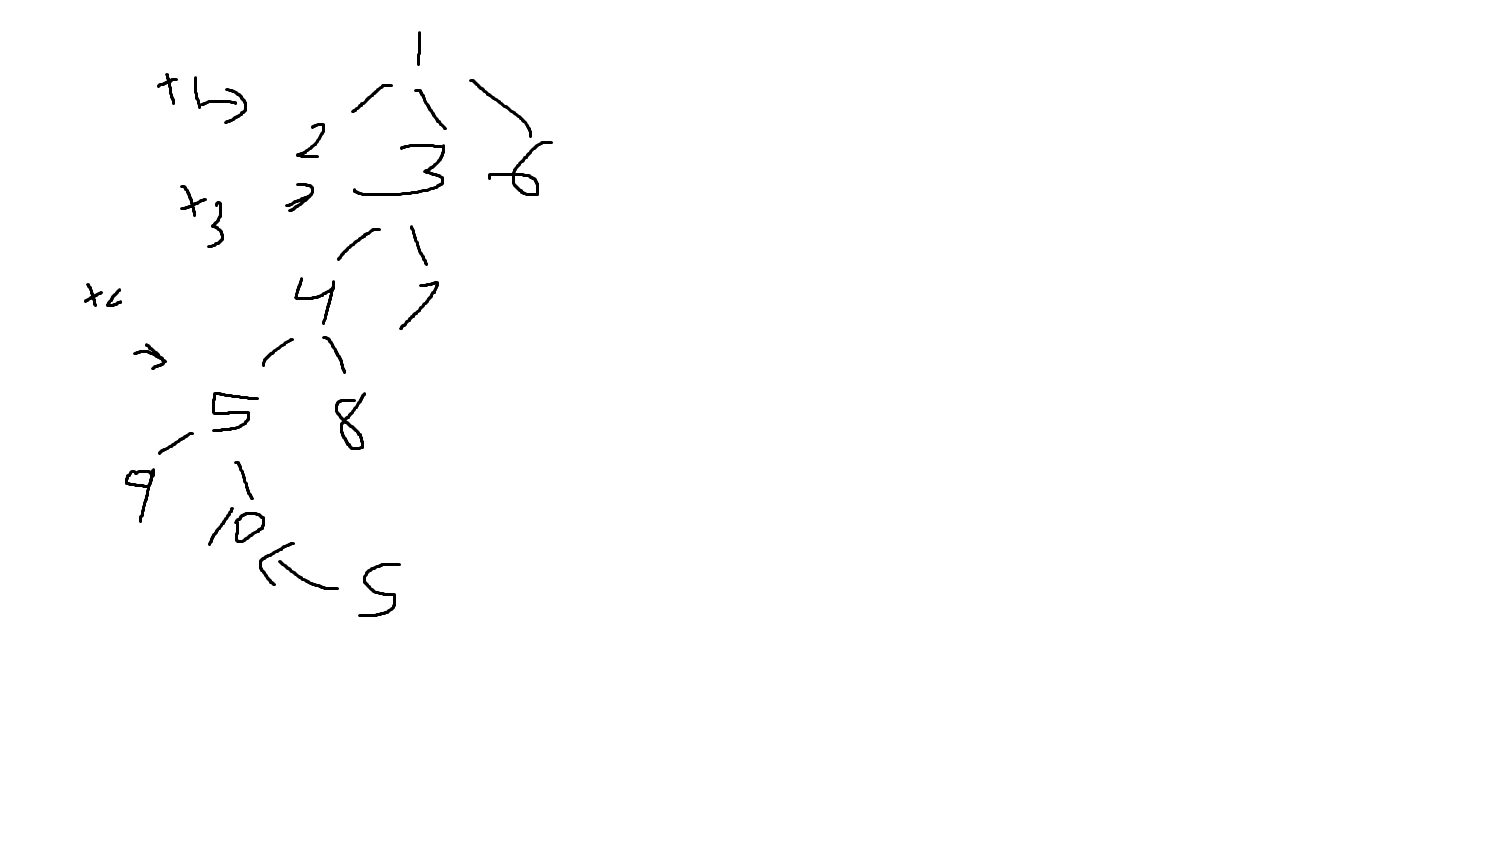 1
+1
2 3 6
+3
4 7
+4
5 8
9
10
5